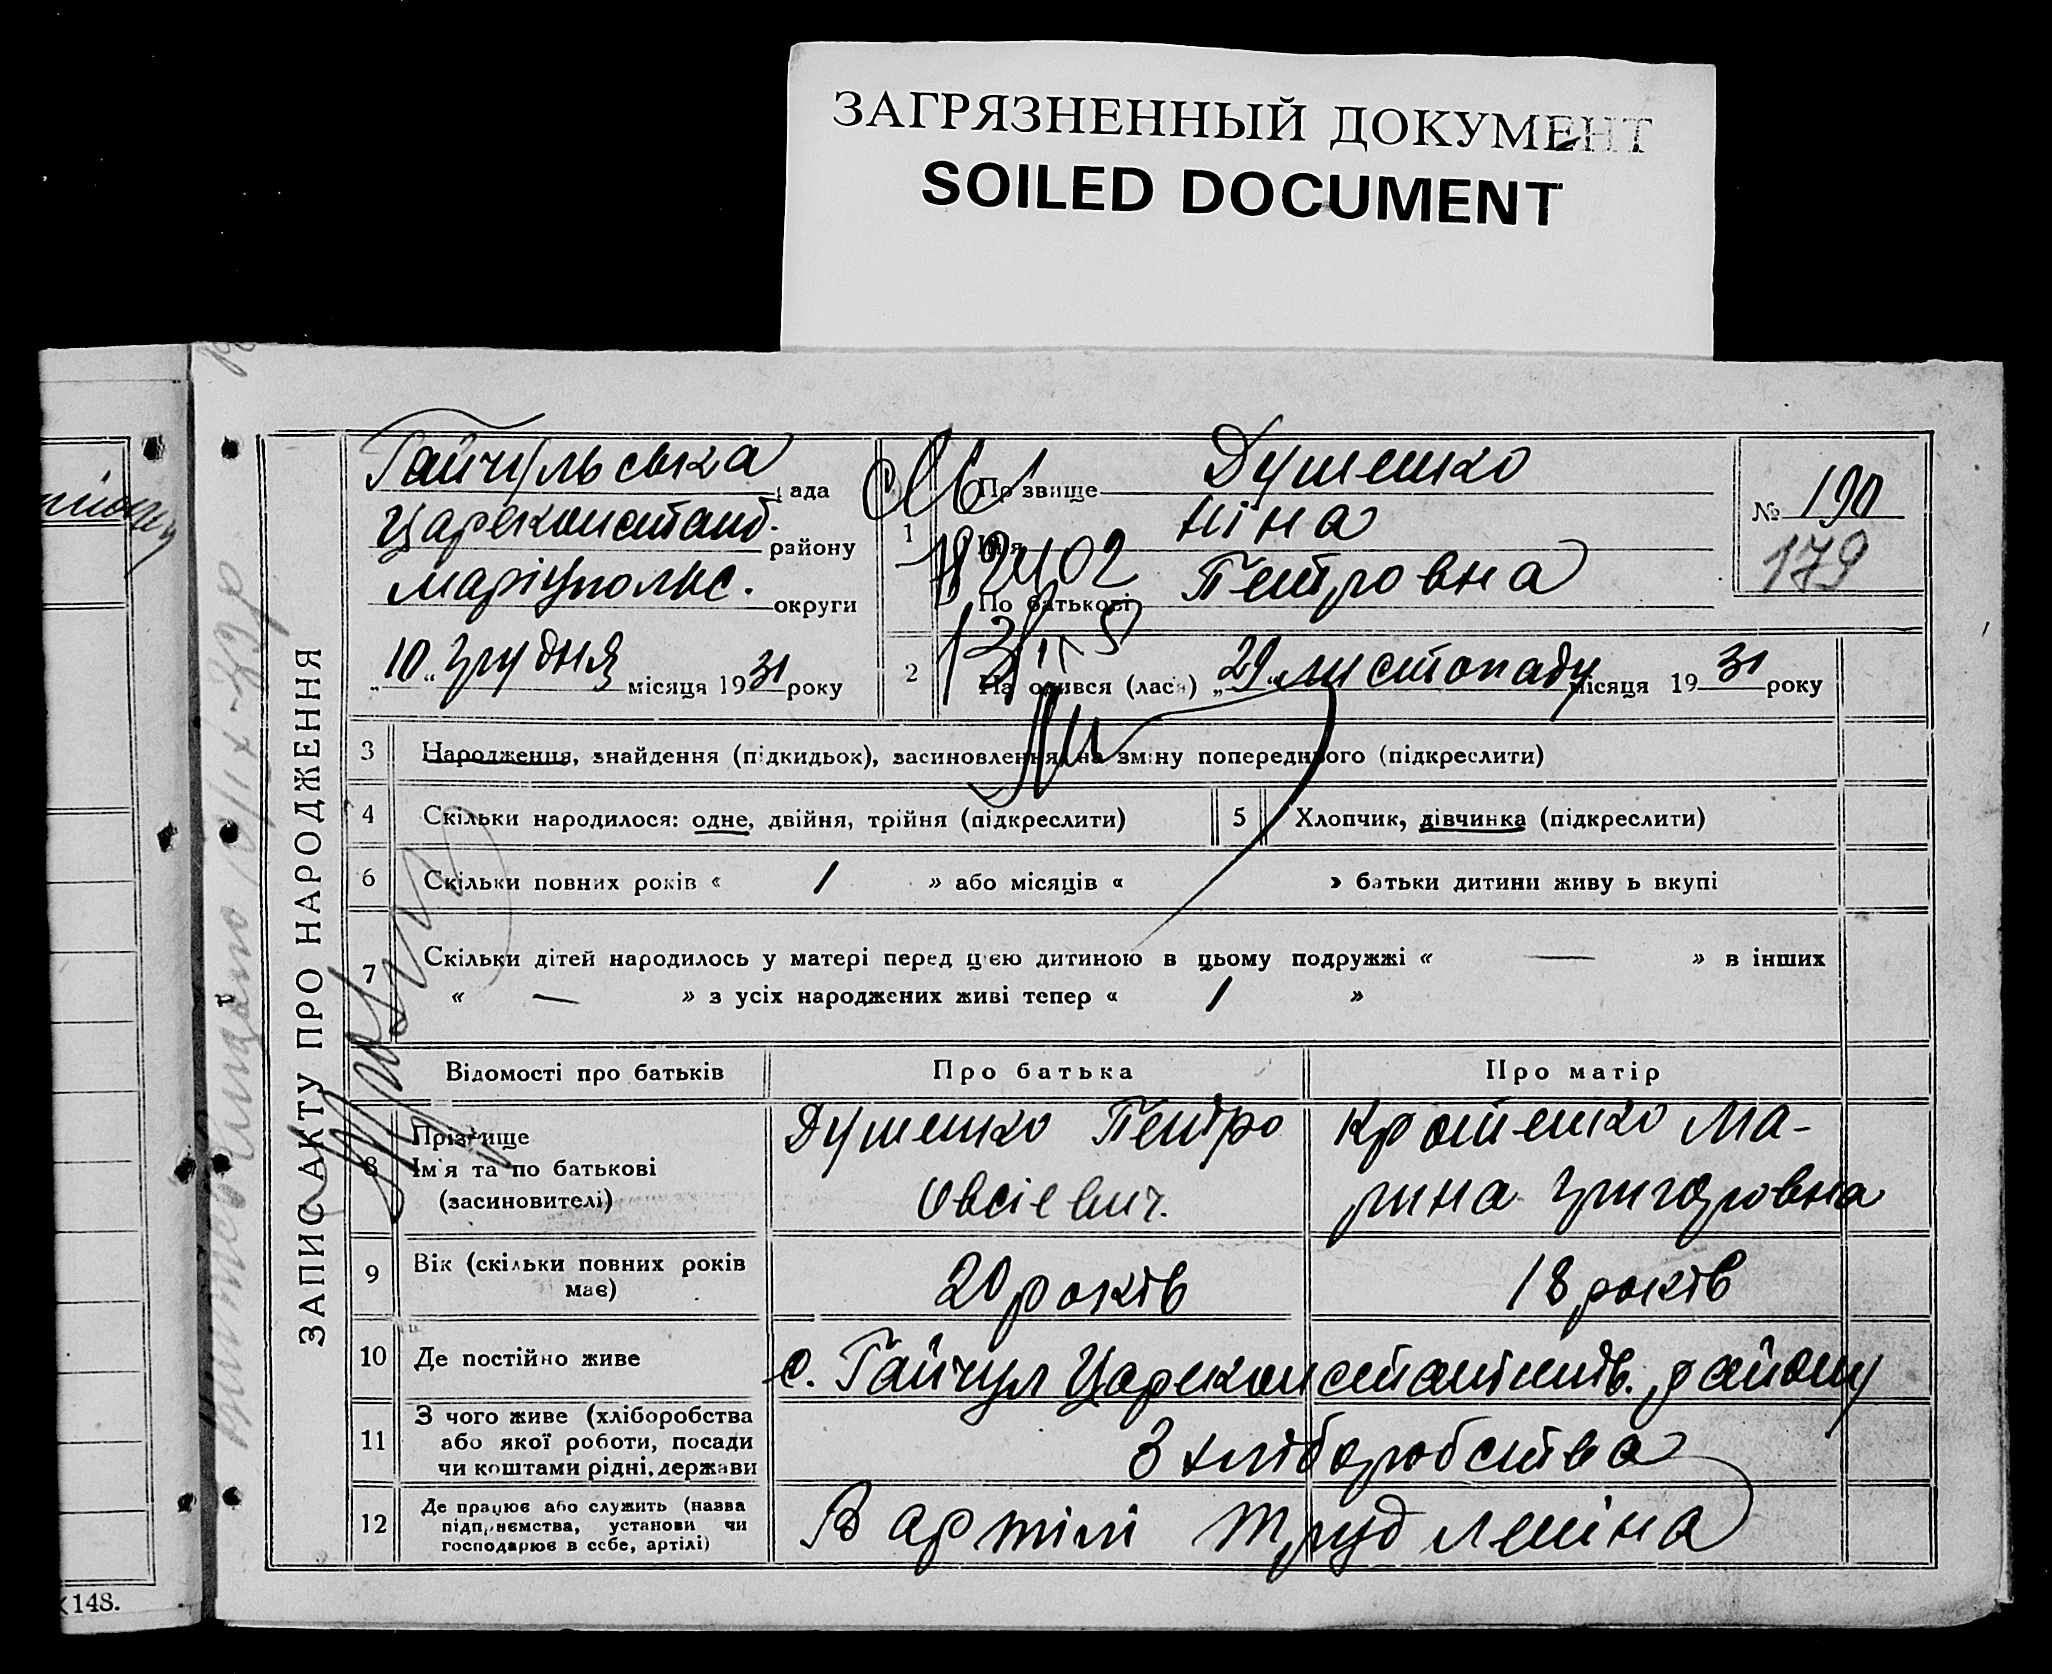 ЗАГРЯЗНЕННЫЙ ДОКУМЕНТ
SOILED DOCUMENT
ЗАПИС АКТУ ПРО НАРОДЖЕННЯ
Гайчульська рада
Цареконстант. району
Маріупольс. округи
„10“ грудня місяця 1931 року
1 Прізвище Душенко
Ім'я Ніна
По батькові Петровна
№ 190
179
182402
2 Народився (лася) „29“ листопаду місяця 1931 року
3 Народження, знайдення (підкидьок), засиновлення, на зміну попереднього (підкреслити)
4 Скільки народилося: одне, двійня, трійня (підкреслити)
5 Хлопчик, дівчинка (підкреслити)
6 Скільки повних років « 1 » або місяців « » батьки дитини живуть вкупі
7 Скільки дітей народилось у матері перед цією дитиною в цьому подружжі « — » в інших
« — » з усіх народжених живі тепер « 1 »
Відомості про батьків Про батька Про матір
8 Прізвище
Ім'я та по батькові
(засиновителі)
Душенко Петро
Овсієвич.
Кротенко Ма-
рина Григоровна
9 Вік (скільки повних років
має)
20 років 18 років
10 Де постійно живе с. Гайчул Цареконстантинів. району
11 З чого живе (хліборобства
або якої роботи, посади
чи коштами рідні, держави
З хліборобства
12 Де працює або служить (назва
підприємства, установи чи
господарює в себе, артілі)
В артілі Труд Леніна
148.